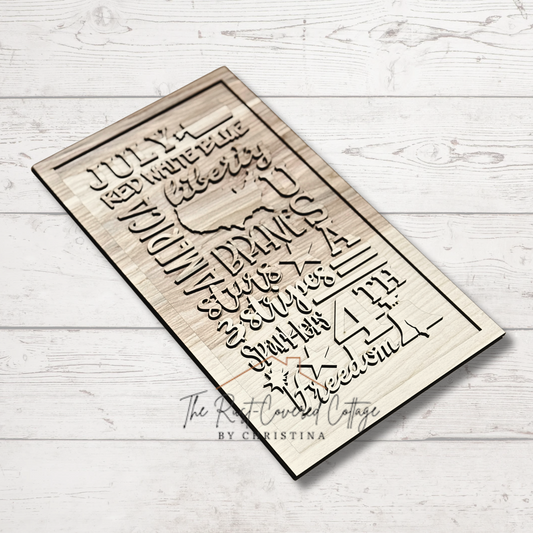 JULY
RED WHITE BLUE
liberty
AMERICA
USA
BRAVE
stars
& stripes
Sparklers
4TH
freedom
The Rust-Covered Cottage
BY CHRISTINA